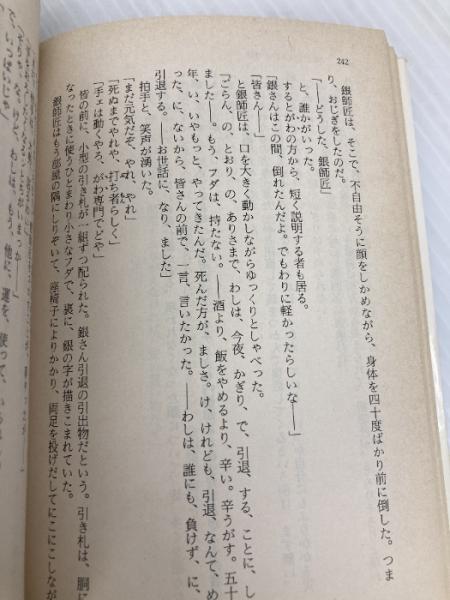 242
銀師匠は、そこで、不自由そうに顔をしかめながら、身体を四十度ばかり前に倒した。つま
り、おじぎをしたのだ。
「――どうした、銀師匠」
と、誰かがいった。
するとがわの方から、短く説明する者も居る。
「銀さんはこの間、倒れたんだよ。でもわりに軽かったらしいな――」
「皆さん――」
と銀師匠は、口を大きく動かしながらゆっくりとしゃべった。
「ごらん、の、とおり、の、ありさまで、わしは、今夜、かぎり、で、引退、する、ことに、し
ました――。もう、フダは、持たない。――酒より、飯をやめるより、辛い。辛うがす。五十
年、い、いやもっと、やってきたんだ。死んだ方が、ましさ。け、けれども、引退、なんて、め
った、に、ないから、皆さんの前で、一言、言いたかった。――わしは、誰にも、負けず、に、
引退する。――お世話に、なり、ました」
拍手と、笑声が湧いた。
「まだ元気だぞ、やれ、やれ」
「死ぬまでやれや、打ち者らしく」
「手ェは動くやろ、がわ専門でどや」
皆の前に、小型の引き札が一組ずつ配られた。銀さん引退の引出物だという。引き札は、胴に
なったときに使うひとまわり小さなフダで、裏に、銀の字が描きこまれていた。
銀師匠はもう部屋の隅にしりぞいて、座椅子によりかかり、両足を投げだしてにこにこしなが